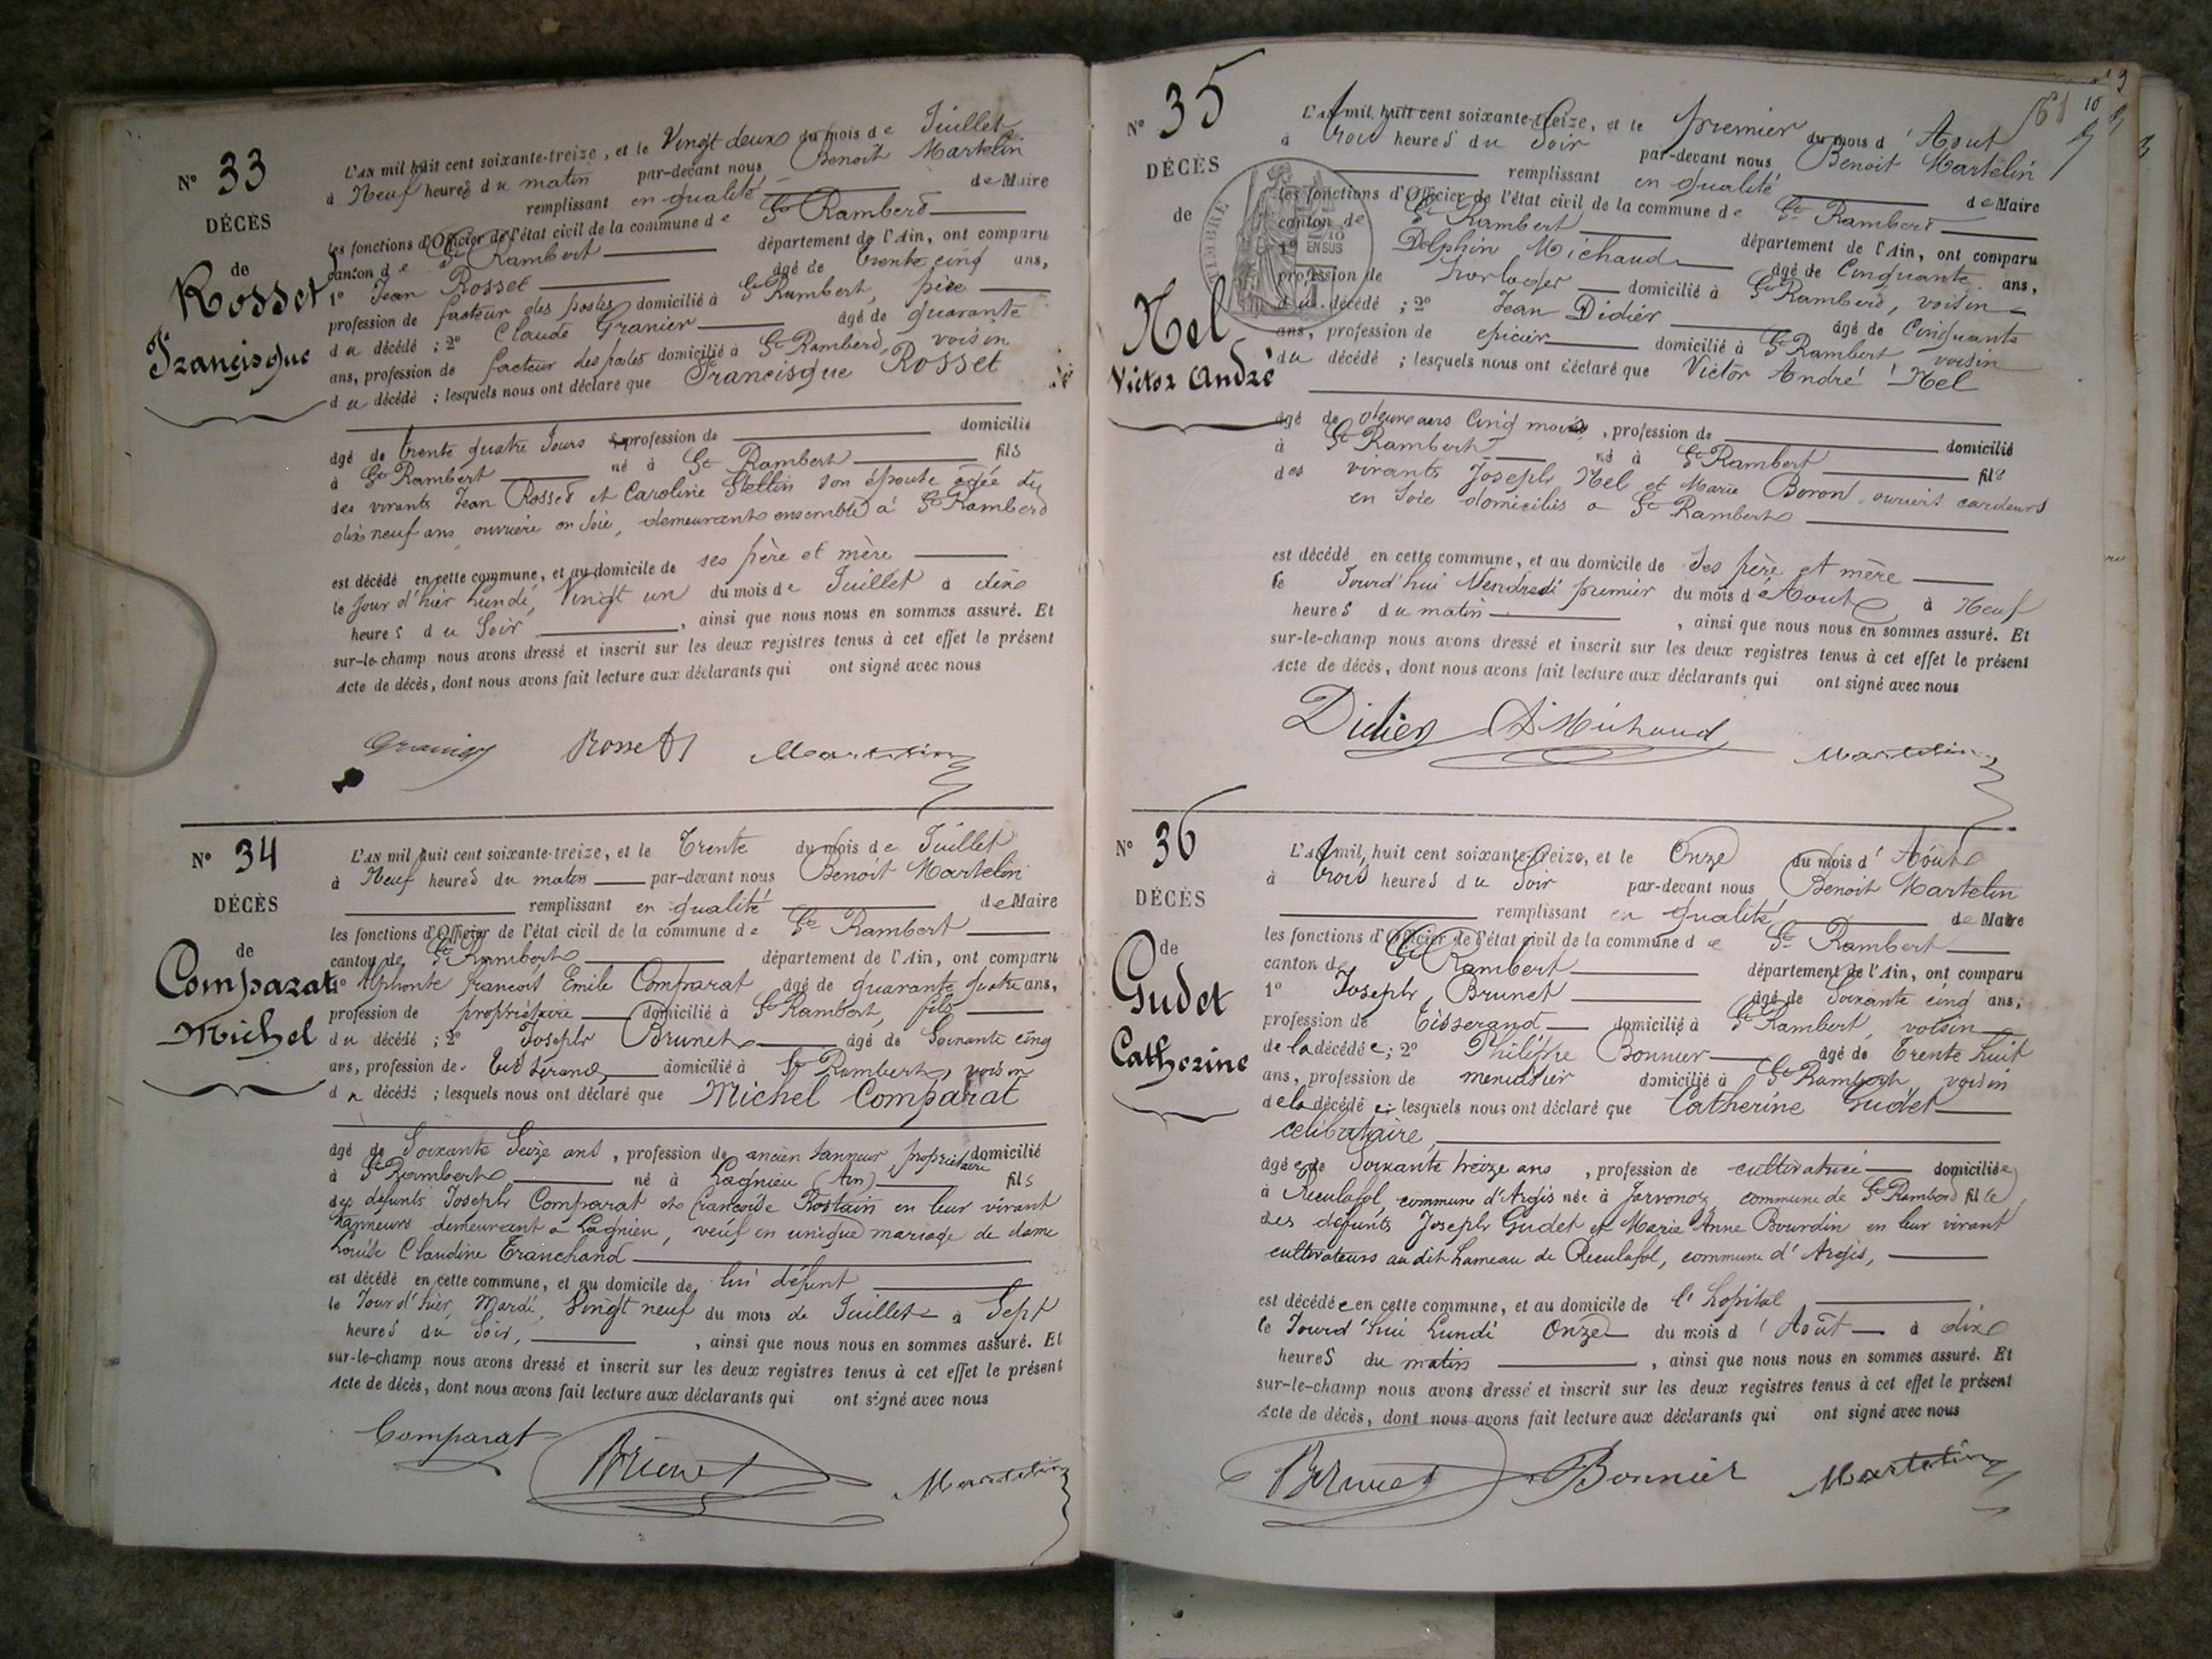 N° 33
DÉCÈS
de
Rosset
Francisque
L'AN mil huit cent soixante-treize, et le Vingt deux du mois de Juillet
à Neuf heures du matin par-devant nous Benoit Martelin
remplissant en qualité de Maire
les fonctions d'Officier de l'état civil de la commune de St Rambert
canton de St Rambert département de l'Ain, ont comparu
1° Jean Rosset âgé de trente cinq ans,
profession de facteur des postes domicilié à St Rambert, père
du décédé ; 2° Claude Granier âgé de quarante
ans, profession de facteur des postes domicilié à St Rambert, voisin
du décédé ; lesquels nous ont déclaré que Francisque Rosset
âgé de trente quatre Jours profession de domicilié
à St Rambert né à St Rambert fils
des vivants Jean Rosset et Caroline son épouse agée de
dix neuf ans, ouvrière en Soie, demeurant ensemble à St Rambert
est décédé en cette commune, et au domicile de ses père et mère
le Jour d'hier Lundi, Vingt un du mois de Juillet à dix
heures du Soir, ainsi que nous nous en sommes assuré. Et
sur-le-champ nous avons dressé et inscrit sur les deux registres tenus à cet effet le présent
Acte de décès, dont nous avons fait lecture aux déclarants qui ont signé avec nous
Granier Rosset Martelin
N° 34
DÉCÈS
de
Comparat
Michel
L'AN mil huit cent soixante-treize, et le Trente du mois de Juillet
à Neuf heures du matin par-devant nous Benoit Martelin
remplissant en qualité de Maire
les fonctions d'Officier de l'état civil de la commune de St Rambert
canton de St Rambert département de l'Ain, ont comparu
1° Alphonse François Emile Comparat âgé de quarante quatre ans,
profession de propriétaire domicilié à St Rambert, fils
du décédé ; 2° Joseph Brunet âgé de Soixante cinq
ans, profession de tisserand domicilié à St Rambert, voisin
du décédé ; lesquels nous ont déclaré que Michel Comparat
âgé de Soixante Seize ans, profession de ancien tanneur, propriétaire domicilié
à St Rambert né à Lagnieu (Ain) fils
des défunts Joseph Comparat et françoise Rostain en leur vivant
tanneurs demeurant à Lagnieu, veuf en unique mariage de dame
Louise Claudine Tranchand
est décédé en cette commune, et au domicile de lui défunt
le Jour d'hier, Mardi, Vingt neuf du mois de Juillet à Sept
heures du Soir, ainsi que nous nous en sommes assuré. Et
sur-le-champ nous avons dressé et inscrit sur les deux registres tenus à cet effet le présent
Acte de décès, dont nous avons fait lecture aux déclarants qui ont signé avec nous
Comparat Brunet Martelin
N° 35
DÉCÈS
de
Nel
Victor André
TIMBRE
EN SUS
L'AN mil huit cent soixante-treize, et le premier du mois d'Aout
à trois heures du Soir par-devant nous Benoit Martelin
remplissant en qualité de Maire
les fonctions d'Officier de l'état civil de la commune de St Rambert
canton de St Rambert département de l'Ain, ont comparu
1° Delphin Michaud âgé de Cinquante ans,
profession de horloger domicilié à St Rambert, voisin
du décédé ; 2° Jean Didier âgé de Cinquante
ans, profession de epicier domicilié à St Rambert voisin
du décédé ; lesquels nous ont déclaré que Victor André Nel
âgé de deux ans Cinq mois, profession de domicilié
à St Rambert né à St Rambert fils
des vivants Joseph Nel et Marie Boron, ouvriers cardeurs
en Soie domiciliés à St Rambert
est décédé en cette commune, et au domicile de Ses père et mère
le Jourd'hui Vendredi premier du mois d'Aout à Neuf
heures du matin, ainsi que nous nous en sommes assuré. Et
sur-le-champ nous avons dressé et inscrit sur les deux registres tenus à cet effet le présent
Acte de décès, dont nous avons fait lecture aux déclarants qui ont signé avec nous
Didier D Michaud Martelin
N° 36
DÉCÈS
de
Gudet
Catherine
L'AN mil huit cent soixante-treize, et le Onze du mois d'Aout
à trois heures du Soir par-devant nous Benoit Martelin
remplissant en qualité de Maire
les fonctions d'Officier de l'état civil de la commune de St Rambert
canton de St Rambert département de l'Ain, ont comparu
1° Joseph Brunet âgé de Soixante cinq ans,
profession de tisserand domicilié à St Rambert, voisin
de la décédée ; 2° Philippe Bonnier âgé de Trente huit
ans, profession de menuisier domicilié à St Rambert, voisin
de la décédée lesquels nous ont déclaré que Catherine Gudet
celibataire,
âgée de Soixante treize ans, profession de cultivatrice domiciliée
à Reculafol, commune d'Argis née à Javornoz commune de St Rambert fille
des défunts Joseph Gudet et Marie Anne Bourdin en leur vivant
cultivateurs au dit hameau de Reculafol, commune d'Argis,
est décédée en cette commune, et au domicile de l'hopital
le Jourd'hui Lundi Onze du mois d'Août à dix
heures du matin, ainsi que nous nous en sommes assuré. Et
sur-le-champ nous avons dressé et inscrit sur les deux registres tenus à cet effet le présent
Acte de décès, dont nous avons fait lecture aux déclarants qui ont signé avec nous
Brunet Bonnier Martelin